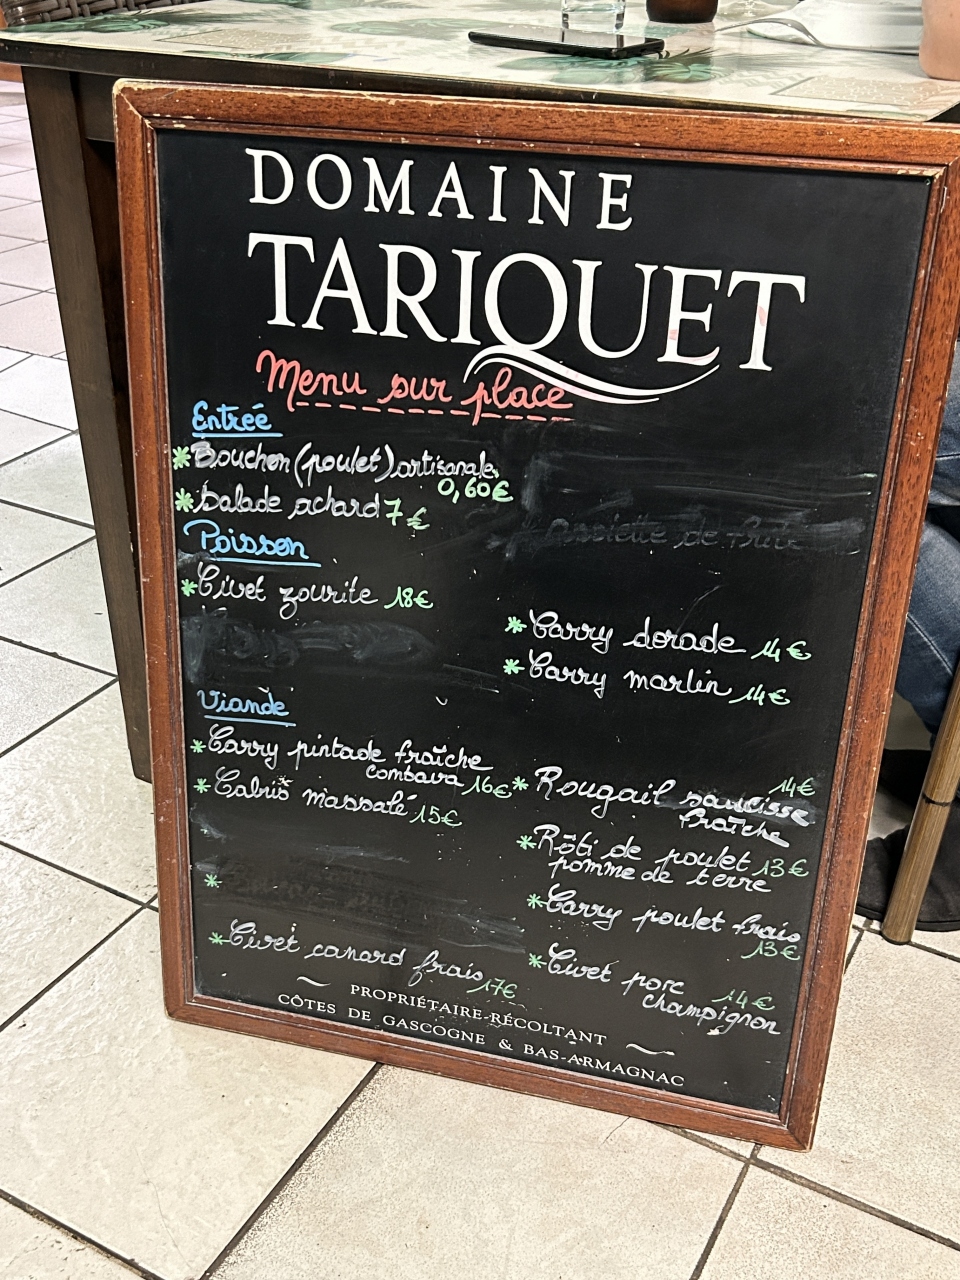 DOMAINE
TARIQUET
Menu sur place
Entrée
*Bouchon (poulet) artisanale
0,60€
*Salade achard 7€
Assiette de
Poisson
*Civet zourite 18€
*Carry dorade 14€
*Carry marlin 14€
Viande
*Carry pintade fraîche
combava 16€
*Cabris massalé 15€
*
*Civet canard frais 17€
*Rougail saucisse 14€
fraîche
*Rôti de poulet 13€
pomme de terre
*Carry poulet frais
13€
*Civet porc 14€
champignon
PROPRIÉTAIRE-RÉCOLTANT
CÔTES DE GASCOGNE & BAS-ARMAGNAC